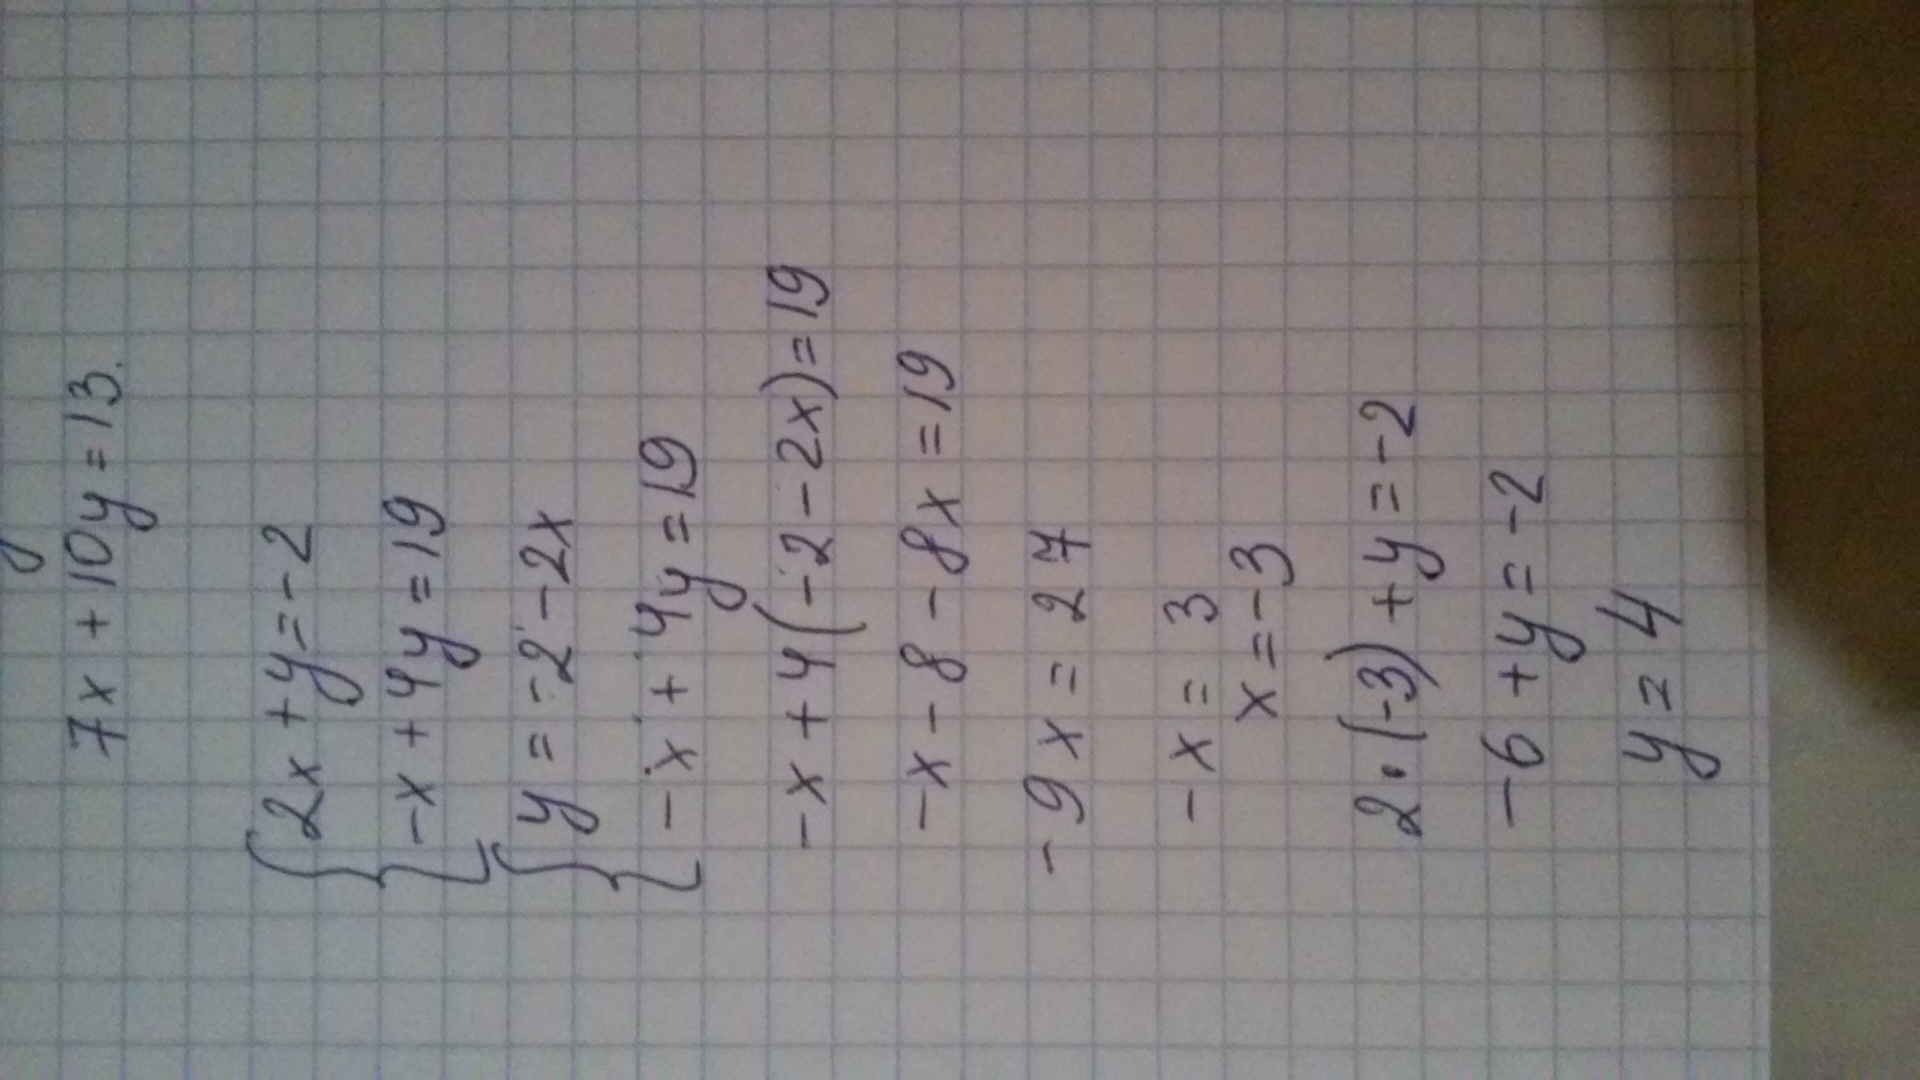 7x + 10y = 13.
2x + y = -2
-x + 4y = 19
y = -2 - 2x
-x + 4y = 19
-x + 4(-2 - 2x) = 19
-x - 8 - 8x = 19
-9x = 27
-x = 3
x = -3
2 · (-3) + y = -2
-6 + y = -2
y = 4